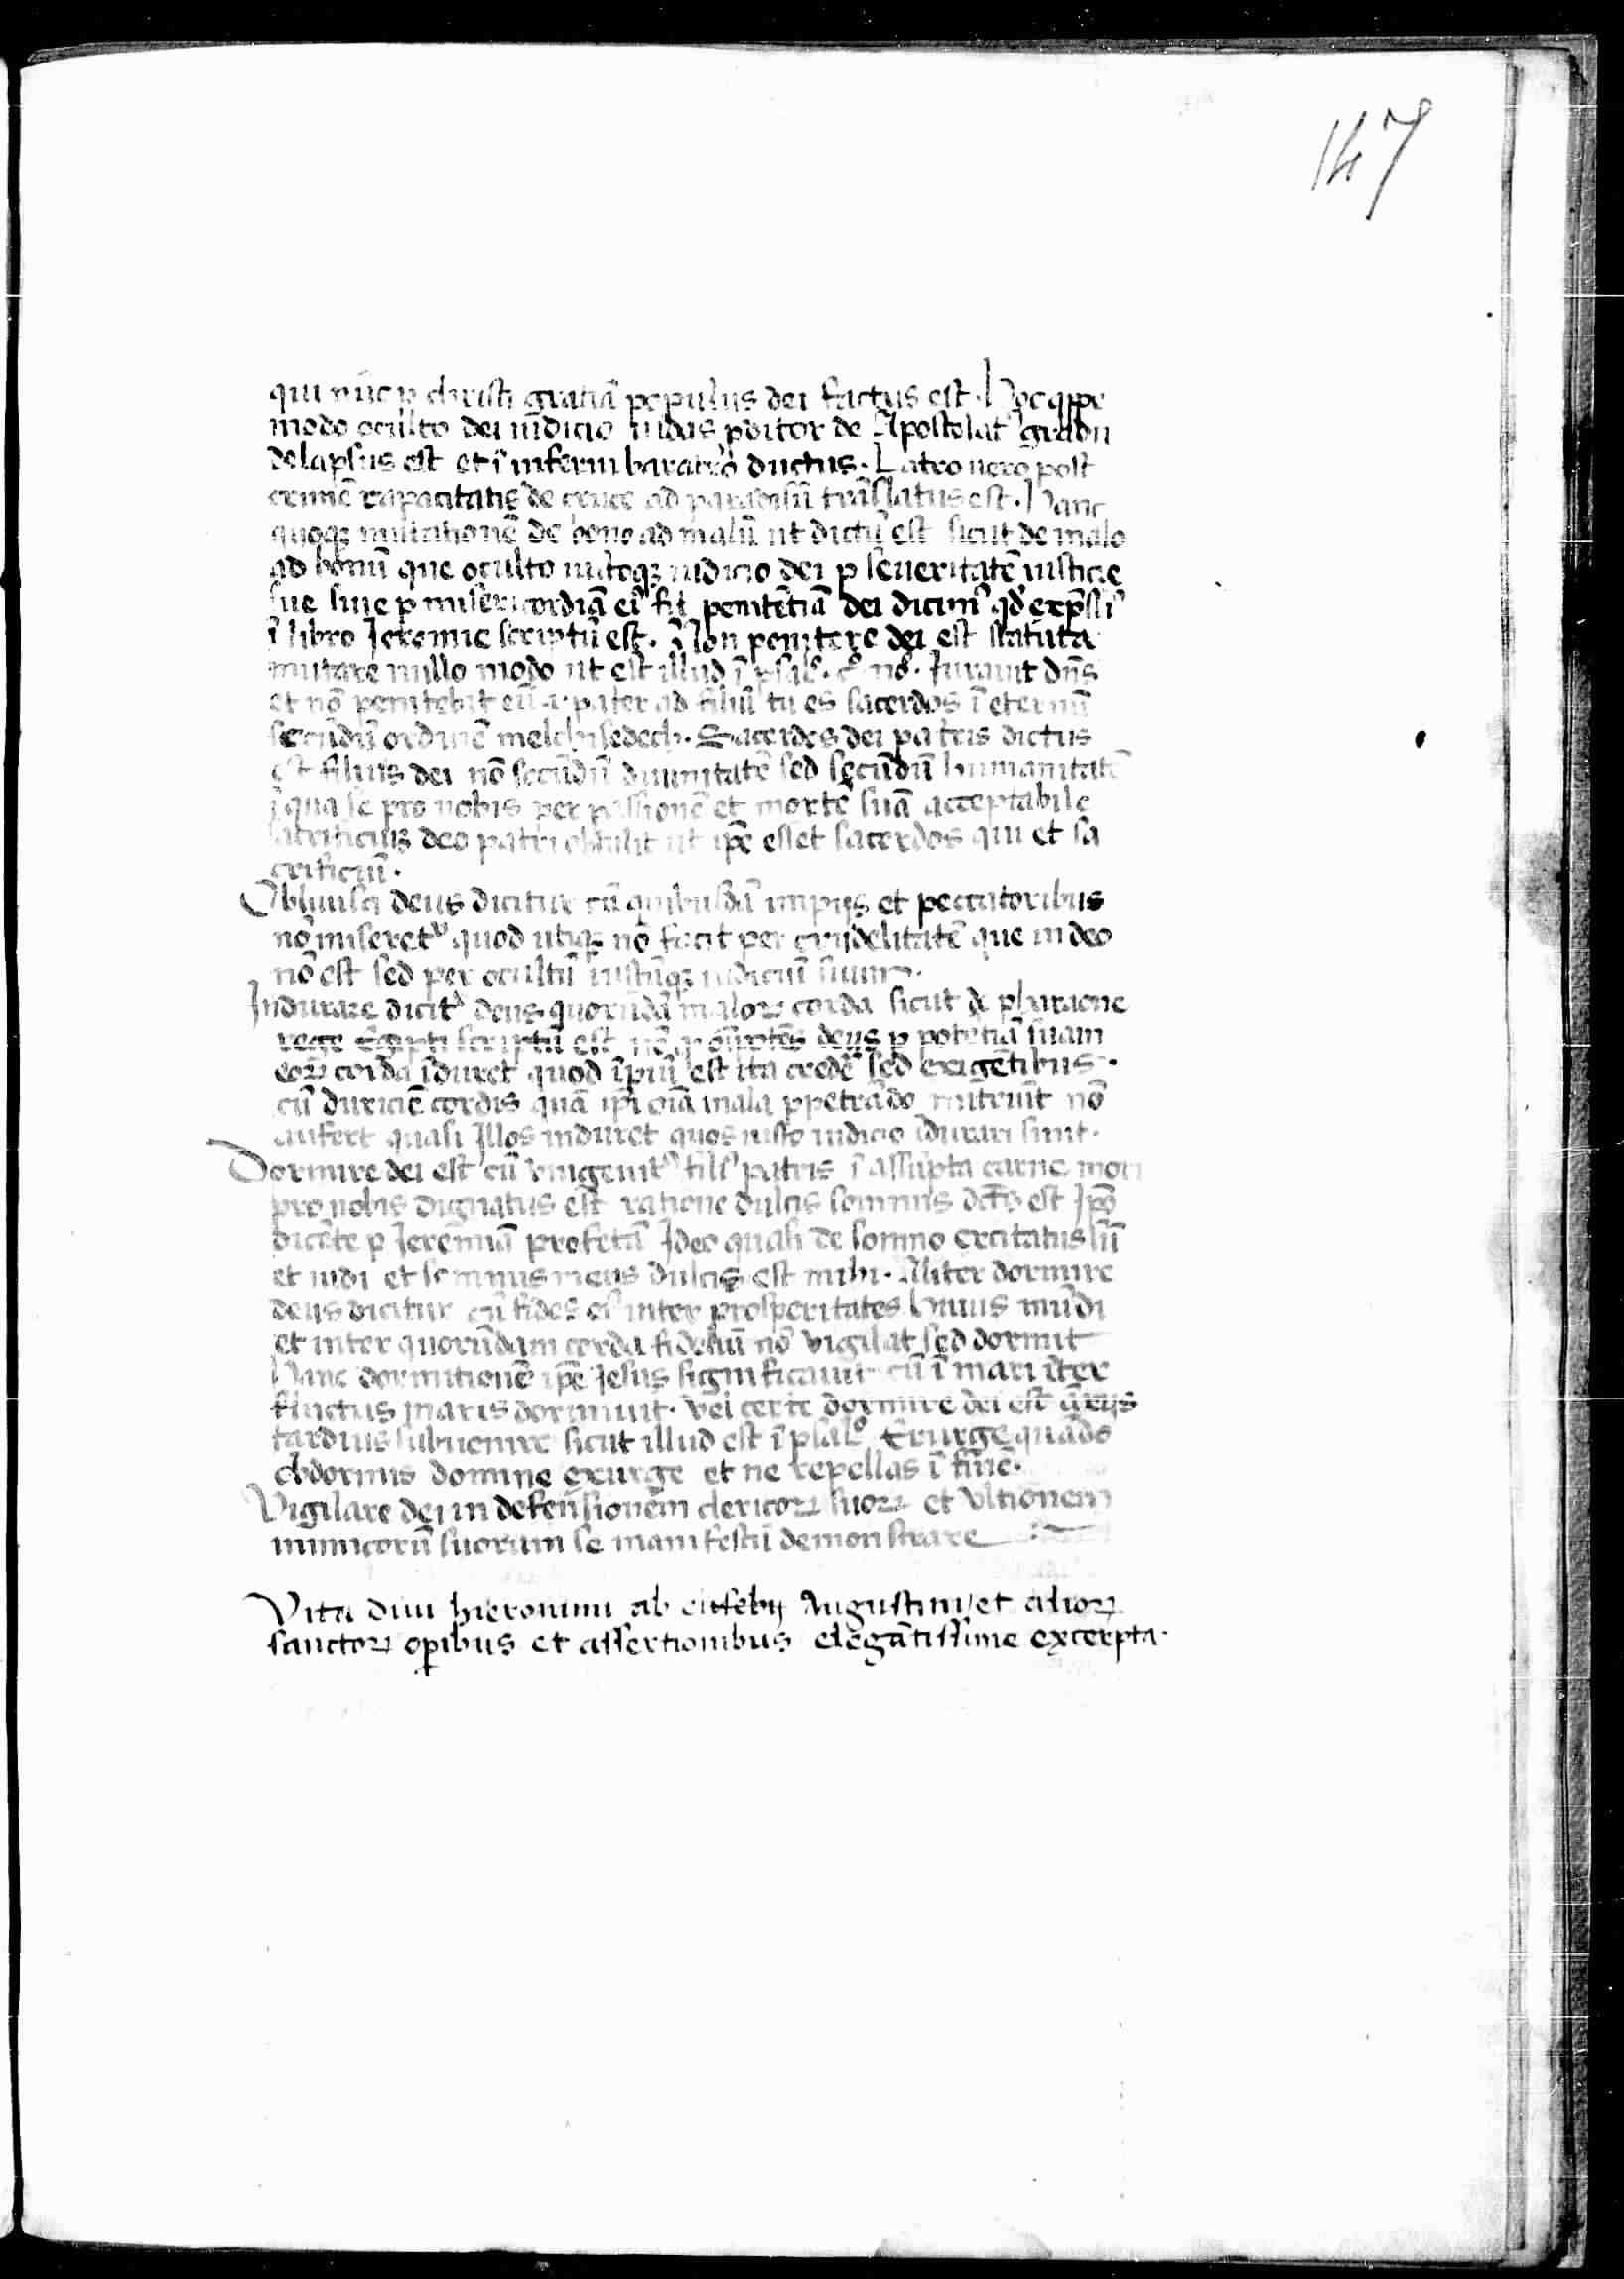 147
qui nūc p christi gratiā populus dei factus est. Hoc q̄ppe
modo oculto dei iudicio iudas pditor de Apostolatꝰ gradu
delapsus est et ī inferni baratro ductus. Latro uero post
crimē rapacitatis de cruce ad paradisū trāslatus est. Hanc
quoqꝫ mutationē de bono ad malū ut dictū est sicut de malo
ad bonū que oculto iustoqꝫ iudicio dei p seueritatē iusticie
sue siue p misericordiā eiꝰ fit penitētiā dei dicimꝰ qd̓ exp̄ssiꝰ
ī libro Jeremie scriptū est. Non penitere dei est statuta
mutare nullo modo ut est illud ī psalº. cº. nº. Jurauit dn̄s
et nō penitebit eū .i. pater ad filiū tu es sacerdos ī eternū
secūdū ordinē melchisedech. Sacerdos dei patris dictus
est filius dei nō secūdū diuinitatē sed secūdū humanitatē
ī qua se pro nobis per passionē et mortē suā acceptabile
sacrificiū deo patri obtulit ut ip̄e esset sacerdos qui et sa
crificiū.
Obliuisci deus dicitur cū quibusdā impijs et peccatoribus
nō miseretᷣ quod utiqꝫ nō facit per crudelitatē que in deo
nō est sed per ocultū iustūqꝫ iudiciū suum.
Indurare dicitᷣ deus quorūdā maloꝝ corda sicut de pharaone
rege Egipti scriptū est nō q̓ om̄ptēs deus p potētiā suam
eoꝝ corda īduret quod īpiū est ita credē sed exigētibus.
cū duriciē cordis quā ip̄i oīa mala ppetrādo nūtriūt nō
aufert quasi Illos induret quos iusto iudicio īdurari sinit.
Dormire dei est cū vnigenitꝰ filiꝰ patris ī assūpta carne mori
pro nobis dignatus est ratione dulcis somnus dct̄s est Ip̄o
dicēte p Jeremiā profetā Ideo quasi de somno excitatus sū
et uidi et somnus meus dulcis est mihi. Aliter dormire
deus dicitur cū fides eiꝰ inter prosperitates huius mūdi
et inter quorūdam corda fideliū nō vigilat sed dormit
Hanc dormitionē ip̄e Jesus significauit cū ī mari īter
fluctus maris dormiuit. Vel certe dormire dei est
tardius subuenire sicut illud est ī psalº Exurge quādo
obdormis domine exurge et ne repellas ī finē.
Vigilare dei in defensionem clericoꝝ suoꝝ et vltionem
inimicorū suorum se manifestū demonstrare
Vita diui hieronimi ab eusebij Augustini et alioꝝ
sanctoꝝ opibus et assertionibus elegātissime excerpta.